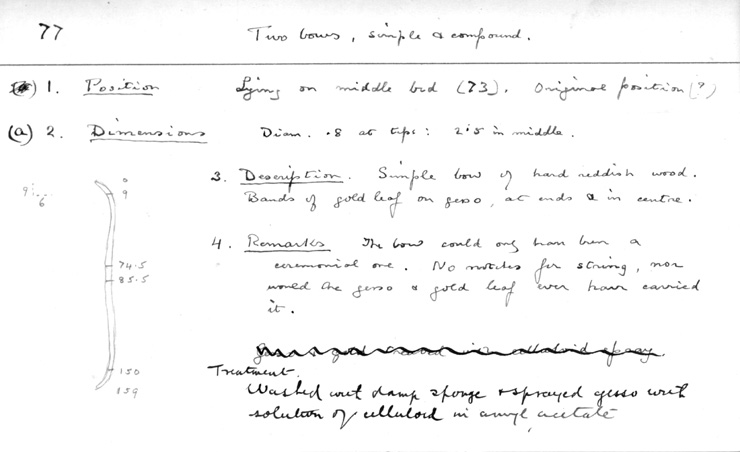 77 Two bows, simple & compound.
1. Position Lying on middle bed (73). Original position (?)
(a) 2. Dimensions Diam. .8 at tips: 2.5 in middle.
3. Description. Simple bow of hard reddish wood.
Bands of gold leaf on gesso, at ends & in centre.
0
9
6
9
74.5
85.5
150
159
4. Remarks The bow could only have been a
ceremonial one. No notches for string, nor
would the gesso & gold leaf ever have carried
it.
celluloid spray.
Treatment.
Washed with damp sponge & sprayed gesso with
solution of celluloid in amyl acetate